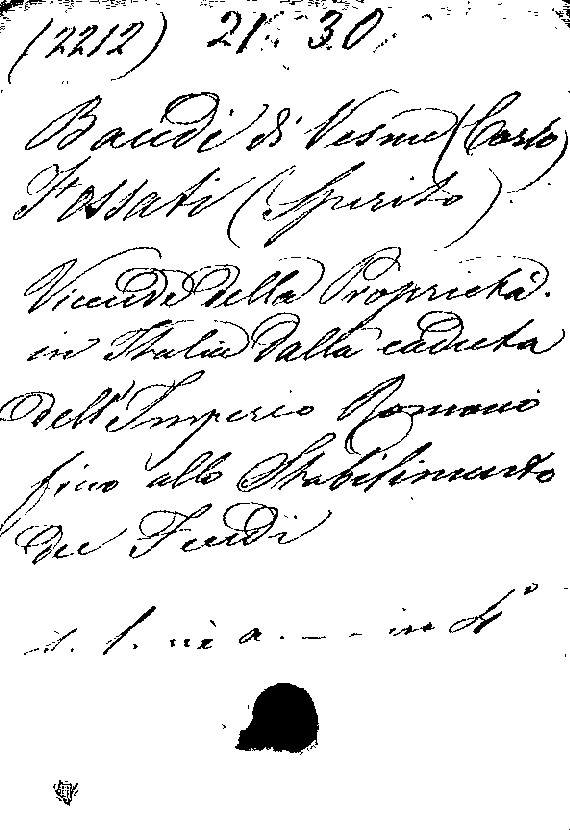 (2212) 21. 30.
Baudi di Vesme (Carlo)
Fossati (Spirito)
Vicende della Proprietà
in Italia dalla caduta
dell'Imperio Romano
fino allo Stabilimento
dei Feudi
s. l. nè a. - - - in 4°